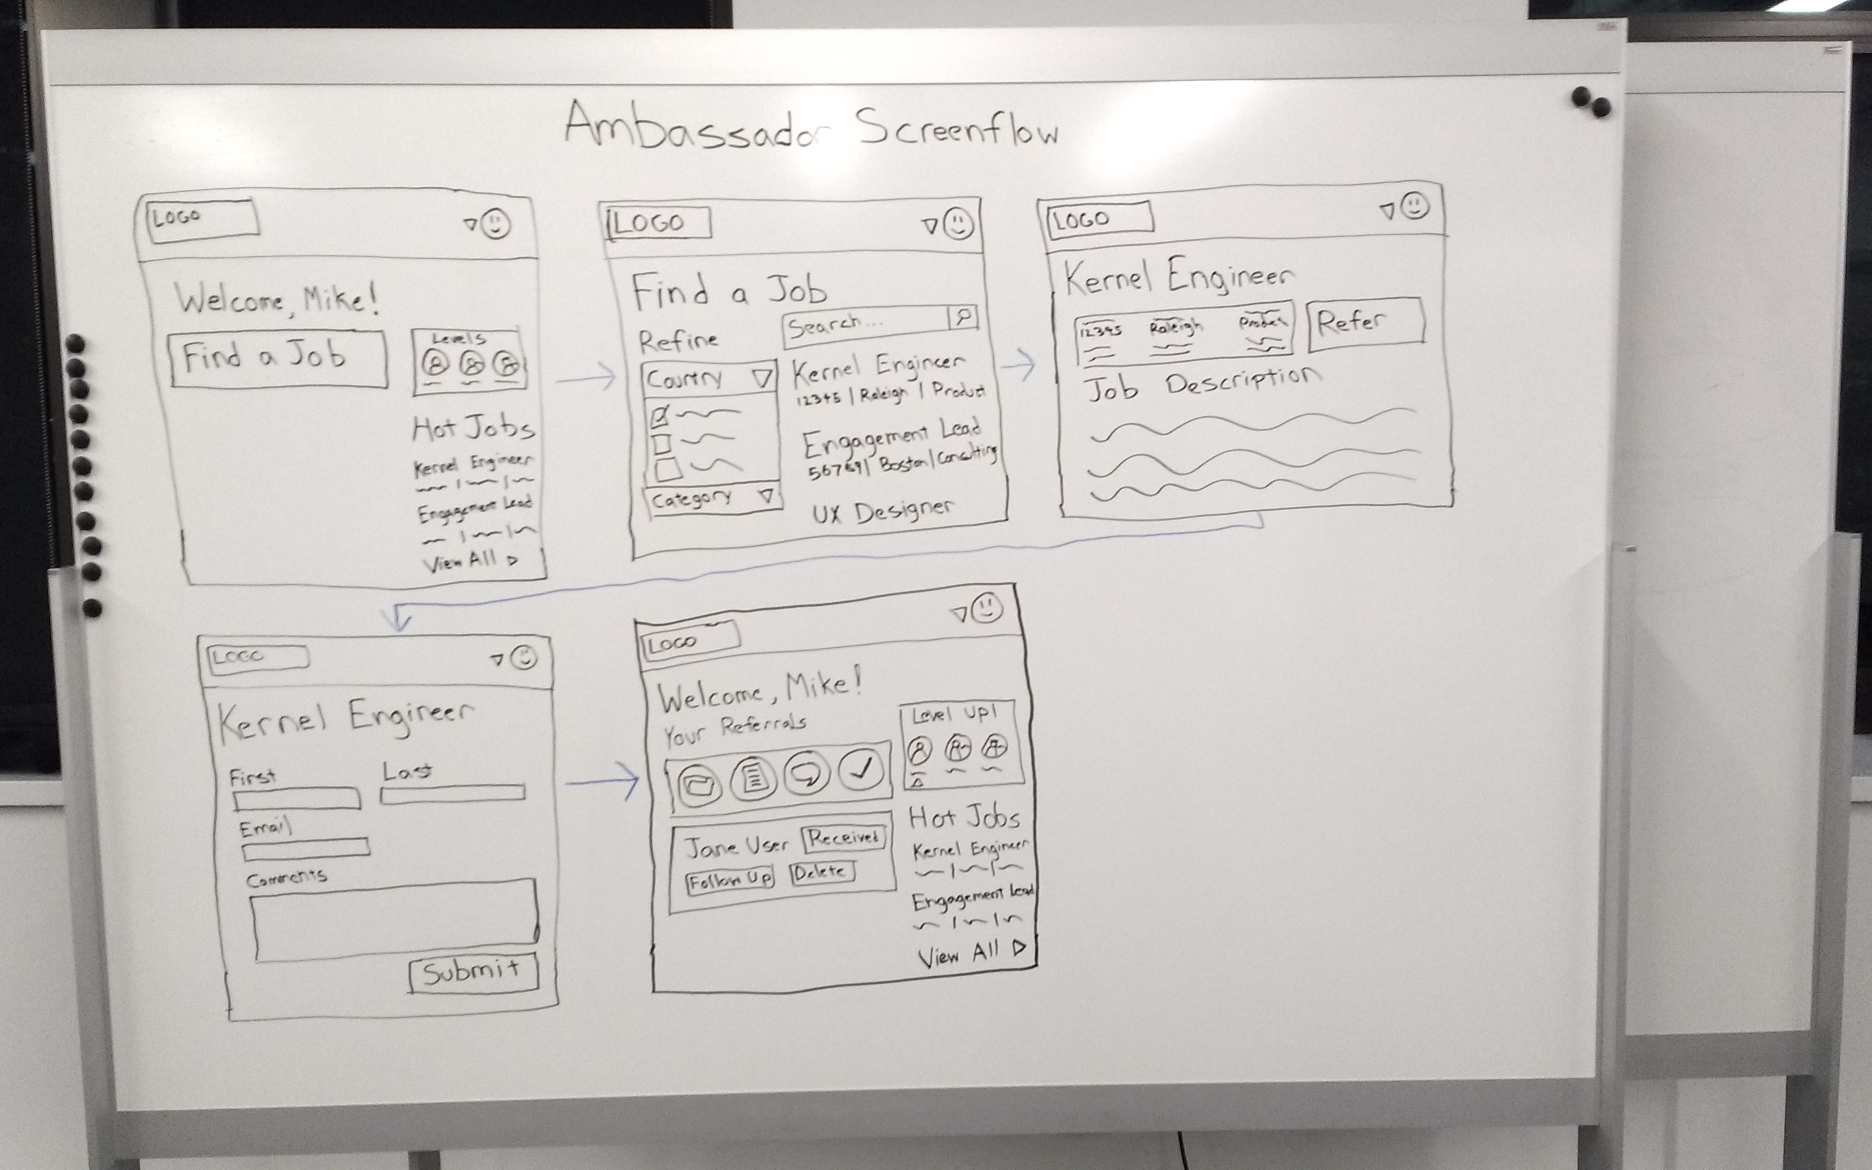 Ambassador Screenflow
LOGO
Welcome, Mike!
Find a Job
Levels
Hot Jobs
Kernel Engineer
Engagement Lead
View All
LOGO
Find a Job
Search...
Refine
Country
Category
Kernel Engineer
12345 | Raleigh | Product
Engagement Lead
56769 | Boston | Consulting
UX Designer
LOGO
Kernel Engineer
12345 Raleigh Product
Refer
Job Description
LOGO
Kernel Engineer
First Last
Email
Comments
Submit
LOGO
Welcome, Mike!
Your Referrals
Jane User Received
Follow Up Delete
Level Up!
Hot Jobs
Kernel Engineer
Engagement Lead
View All